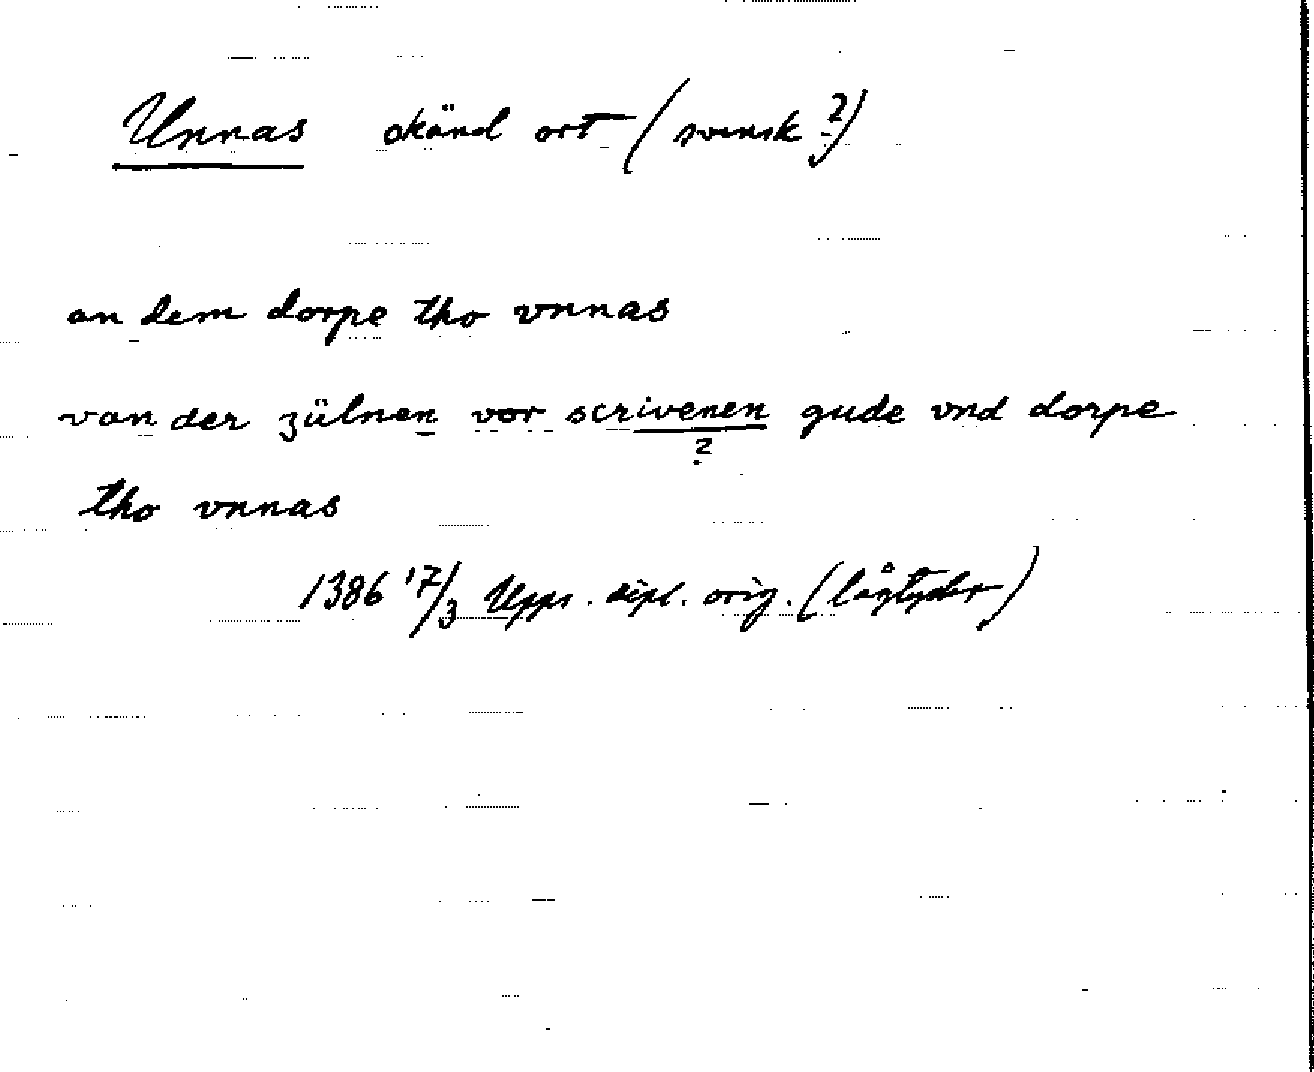 Unnas okänd ort (svensk?)
an dem dorpe tho vnnas
van der zülnen vor scrivenen gude vnd dorpe
?
tho vnnas
1386 17/3 Upps. dipl. orig. (lågtyskt)